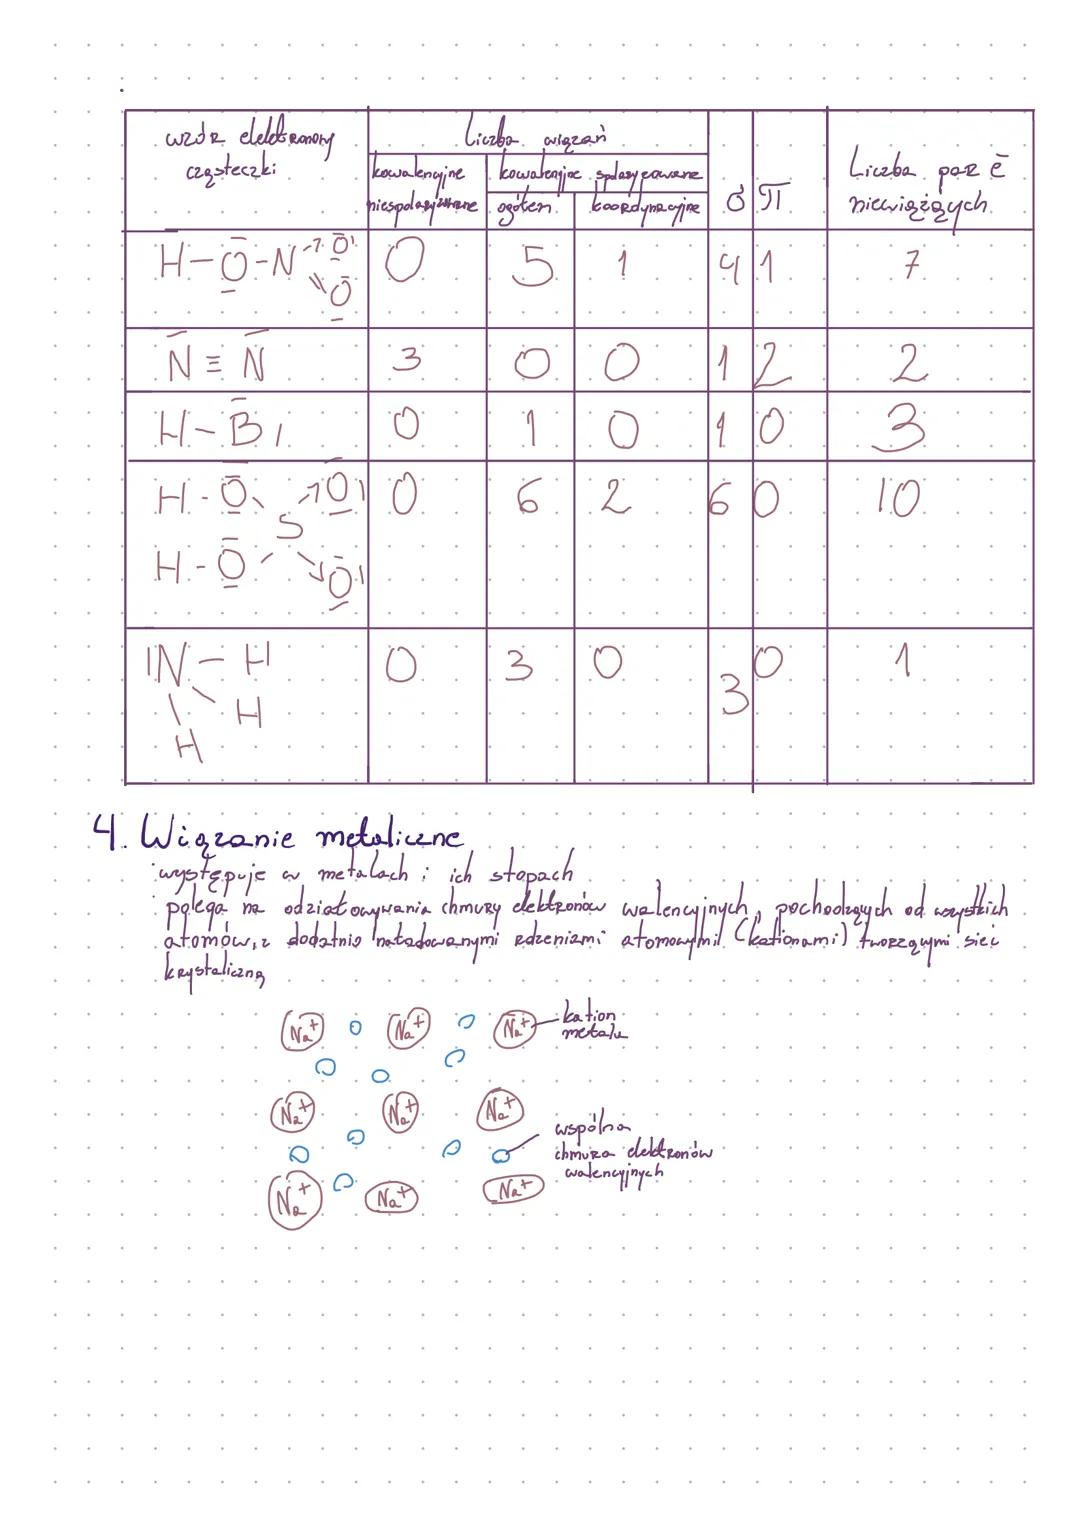 wzór elektronowy cząsteczki
Liczba wiązań
kowalencyjne niespolaryzowane
kowalencyjne spolaryzowane
ogółem
koordynacyjne
σ
π
Liczba par ē niewiążących
H-O-N O O 0 5 1 4 1 7
N≡N 3 0 0 1 2 2
H-B 0 1 0 1 0 3
H-O O 0 6 2 6 0 10
S
H-O O
N-H 0 3 0 3 0 1
H
H
4. Wiązanie metaliczne
występuje w metalach i ich stopach
polega na odziaływania chmury elektronów walencyjnych, pochodzących od wszystkich
atomów, z dodatnio naładowanymi rdzeniami atomowymi (kationami) tworzącymi sieć
krystaliczną
Na+ Na+ Na+
kation
metalu
Na+ Na+ Na+
wspólna
chmura elektronów
walencyjnych
Na+ Na+ Na+